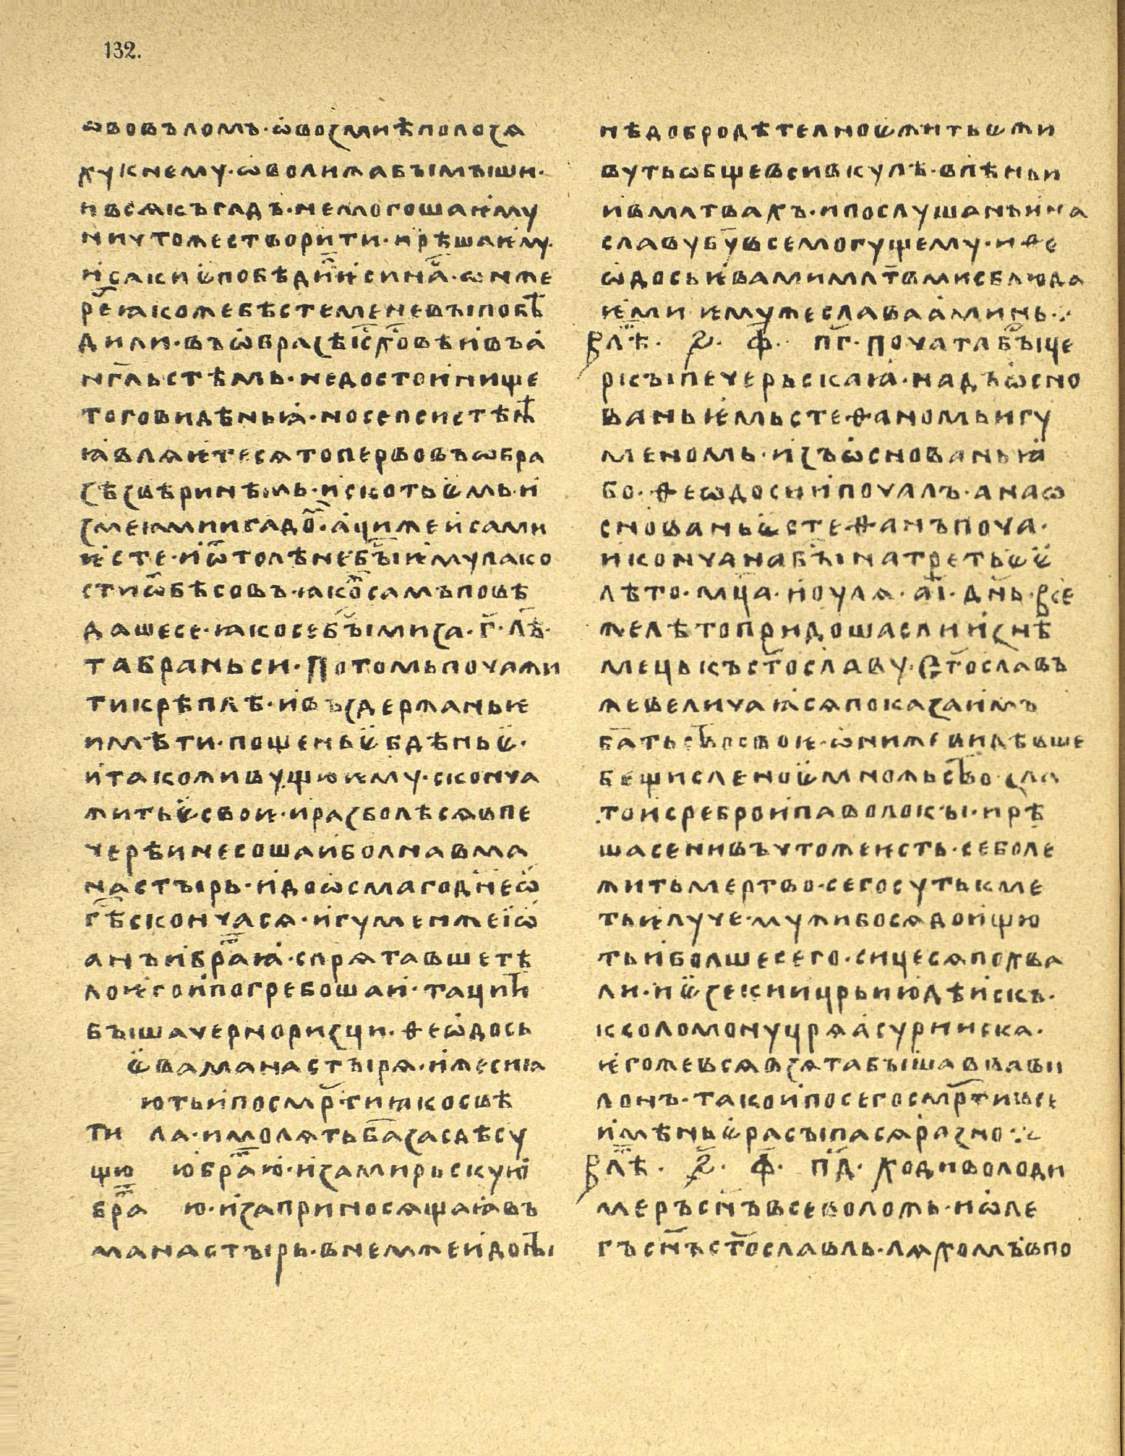 132.
ѡвовъломъ·ѡвоꙁмиѣполоꙁѧ
хукнему·ѡволиѧабъімъіши·
ивсѧкъгадъ·немогошаѥму
ничтожестворити·ирѣшаѥму·
исакиѥпобѣдилн҃ъисина҃·ѡнже
рече҃ꙗкожебѣстеменевъіпобѣ
дили·въѡбраꙁѣі҃с҃хв҃ѣивъа
нг҃льстѣмь·недостоинище
тоговидѣньꙗ·носепсистѣн
ꙗвлѧѥтесѧтопервовъѡбра
ꙁѣꙁвѣринѣмь·искотьѥмь·и
ꙁмеꙗмиигадо҃·ацижеисами
ѥсте·иѿтолѣнебъ҃іѥмупако
стиѿбѣсовъ·ꙗко҃самъповѣ
дашесе·ꙗкосебъ҃імиꙁа·г҃·лѣ҃·
табраньси·Потомьпочажи
тикрѣплѣ·ивъꙁдержаньѥ
имѣти·пощеньѥбдѣньѥ·
итакоживущюѥму·сконча
житьѥсвоѥ·ираꙁболѣсѧвпе
черѣинесошаиболнавма
настъірь·идоѡсмагодн҃еѡ
г҃ѣскончасѧ·игуменжеіѡ
анъибра҃ꙗ·спрѧтавшетѣ
лоѥгоипогребошаи·тации
бъішачерноризци·ѳеѡдось
ѥваманастъірѧ·ижесиꙗ
ютьипосмр҃тиꙗкосвѣ
ти ла·имолѧтьба҃ꙁасдѣсу
щю юбра҃ю·иꙁамирьскую
бра҃ ю·иꙁаприносѧщаꙗвъ
манастъірь·внемжеидон҃ъі
нѣдобродѣтелноѥжитьѥжи
вутьѡбщевсивкупѣ·впѣньи
ивмл҃твахъ·ипослушаньина
славубу҃всемогущему·иѳе
ѡдосьѥвамимлт҃вмисблюда
ѥми ѥмужеславааминь·:·
Влѣ҃·ѕ҃·ф҃·пг҃·Початабъ҃іце
рк҃ъіпечерьскаꙗ·надъѡсно
ваньѥмьстеѳаномьигу
меномь·иꙁъѡснованьꙗ
бо·ѳеѡдосииипочалъ·анаѡ
снованьѥстеѳанъпоча·
икончанабъ҃інатретьѥѥ
лѣто·мц҃а·июулѧ·аі҃·дн҃ь·Все
желѣтопридошаслиизнѣ
мецькъст҃ославу·Ст҃ославъ
жевеличаꙗсѧпокаꙁаимъ
ба҃тьство҃своѥ·ѡнижевидѣвше
бещисленоѥмножьство҃·ꙁла
тоисребромпаволокъі·ирѣ
шасенивъчтожеѥсть·себоле
житьмертво·сегосутькме
тьѥлуче·мужибосѧдоищю
тьиболшесего·сицесѧпохва
ли·иѥꙁекиицр҃ьиюдѣискъ·
ксоломонуцр҃ѧасуриска·
ѥгожевсѧвꙁѧтабъішаввави
лонъ·такоипосегосмр҃тивсе
имѣньѥрасъіпасѧраꙁно·:·
Влѣ҃·ѕ҃·ф҃·пд҃·Ходиволоди
меръсн҃ъвсеволожь·иѡле
гъсн҃ъст҃ославль·лѧхомъвпо